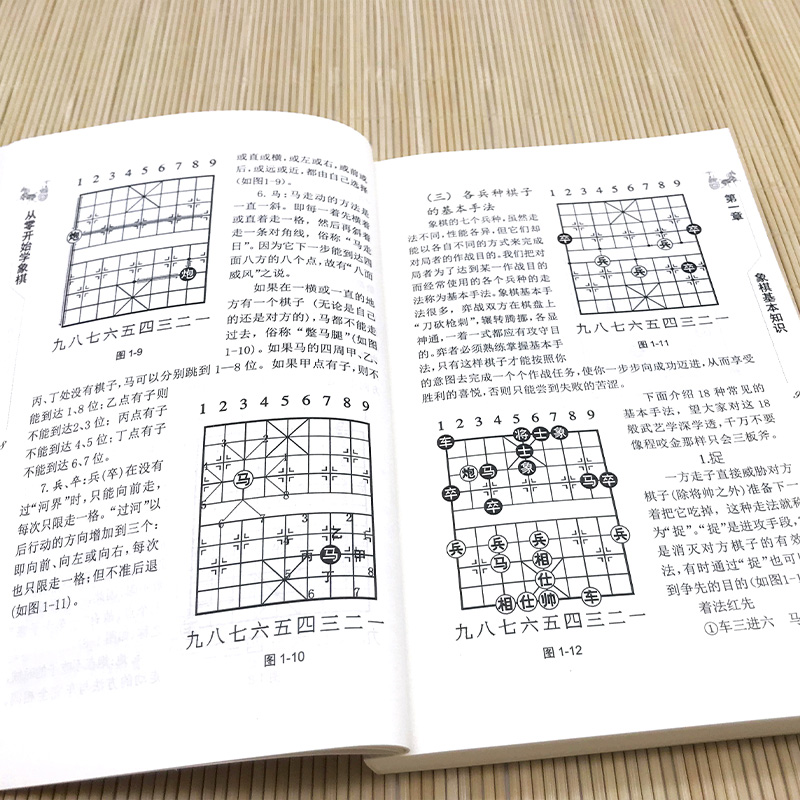 从零开始学象棋
1 2 3 4 5 6 7 8 9
炮
炮
九八七六五四三二一
图 1-9
或直或横，或左或右，或前或
后，或远或近，都由自己选择
(如图1-9)。
6. 马：马走动的方法是
一直一斜。即每一着先横着
或直着走一格，然后再斜着
走一条对角线，俗称“马走
日”。因为它下一步能到达四
面八方的八个点，故有“八面
威风”之说。
如果在一横或一直的地
方有一个棋子（无论是自己
的还是对方的），马都不能走
过去，俗称“蹩马腿”(如图
1-10)。如果马的四周甲、乙、
丙、丁处没有棋子，马可以分别跳到1—8位。如果甲点有子，则不
能到达1、8位；乙点有子则
不能到达2、3位；丙点有子
不能到达4、5位；丁点有子
不能到达6、7位。
7. 兵、卒：兵(卒)在没有
过“河界”时，只能向前走，
每次只限走一格。“过河”以
后行动的方向增加到三个：
即向前、向左或向右，每次
也只限走一格；但不准后退
(如图1-11)。
1 2 3 4 5 6 7 8 9
马
乙
丙 马 甲
丁
九八七六五四三二一
图 1-10
第一章
象棋基本知识
（三）各兵种棋子
的基本手法
象棋的七个兵种，虽然走
法不同，性能各异，但它们却
能以各自不同的方式来完成
对局者的作战目的。我们把对
局者为了达到某一作战目的
而经常使用的各个兵种的走
法称为基本手法。象棋基本手
法很多，弈战双方在棋盘上
“刀砍枪刺”，辗转腾挪，各显
神通，一着一式都应有攻守目
的。弈者必须熟练掌握基本手
法，只有这样棋子才能按照你
的意图去完成一个个作战任务，使你一步步向成功迈进，从而享受
胜利的喜悦，否则只能尝到失败的苦涩。
1 2 3 4 5 6 7 8 9
卒 卒
兵 兵
兵 卒
九八七六五四三二一
图 1-11
1 2 3 4 5 6 7 8 9
车 将 士 象
士
炮 马 象 马 卒
卒
卒 卒
兵 兵 兵 兵
马 相
仕
相 仕 帅 车
九八七六五四三二一
图 1-12
下面介绍18种常见的
基本手法，望大家对这18
般武艺学深学透，千万不要
像程咬金那样只会三板斧。
1.捉
一方走子直接威胁对方
棋子(除将帅之外)准备下一
着把它吃掉，这种走法就称
为“捉”。“捉”是进攻手段，
是消灭对方棋子的有效
法，有时通过“捉”也可
到争先的目的(如图1-1
着法红先
①车三进六 马